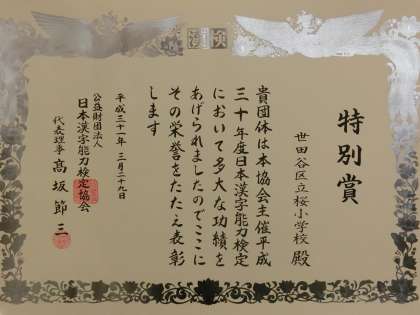 漢検
特別賞
世田谷区立桜小学校 殿
貴団体は本協会主催平成
三十年度日本漢字能力検定
において多大な功績を
あげられましたのでここに
その栄誉をたたえ表彰
します
平成三十一年 三月二十九日
公益財団法人
日本漢字能力検定協会
代表理事 髙坂 節三